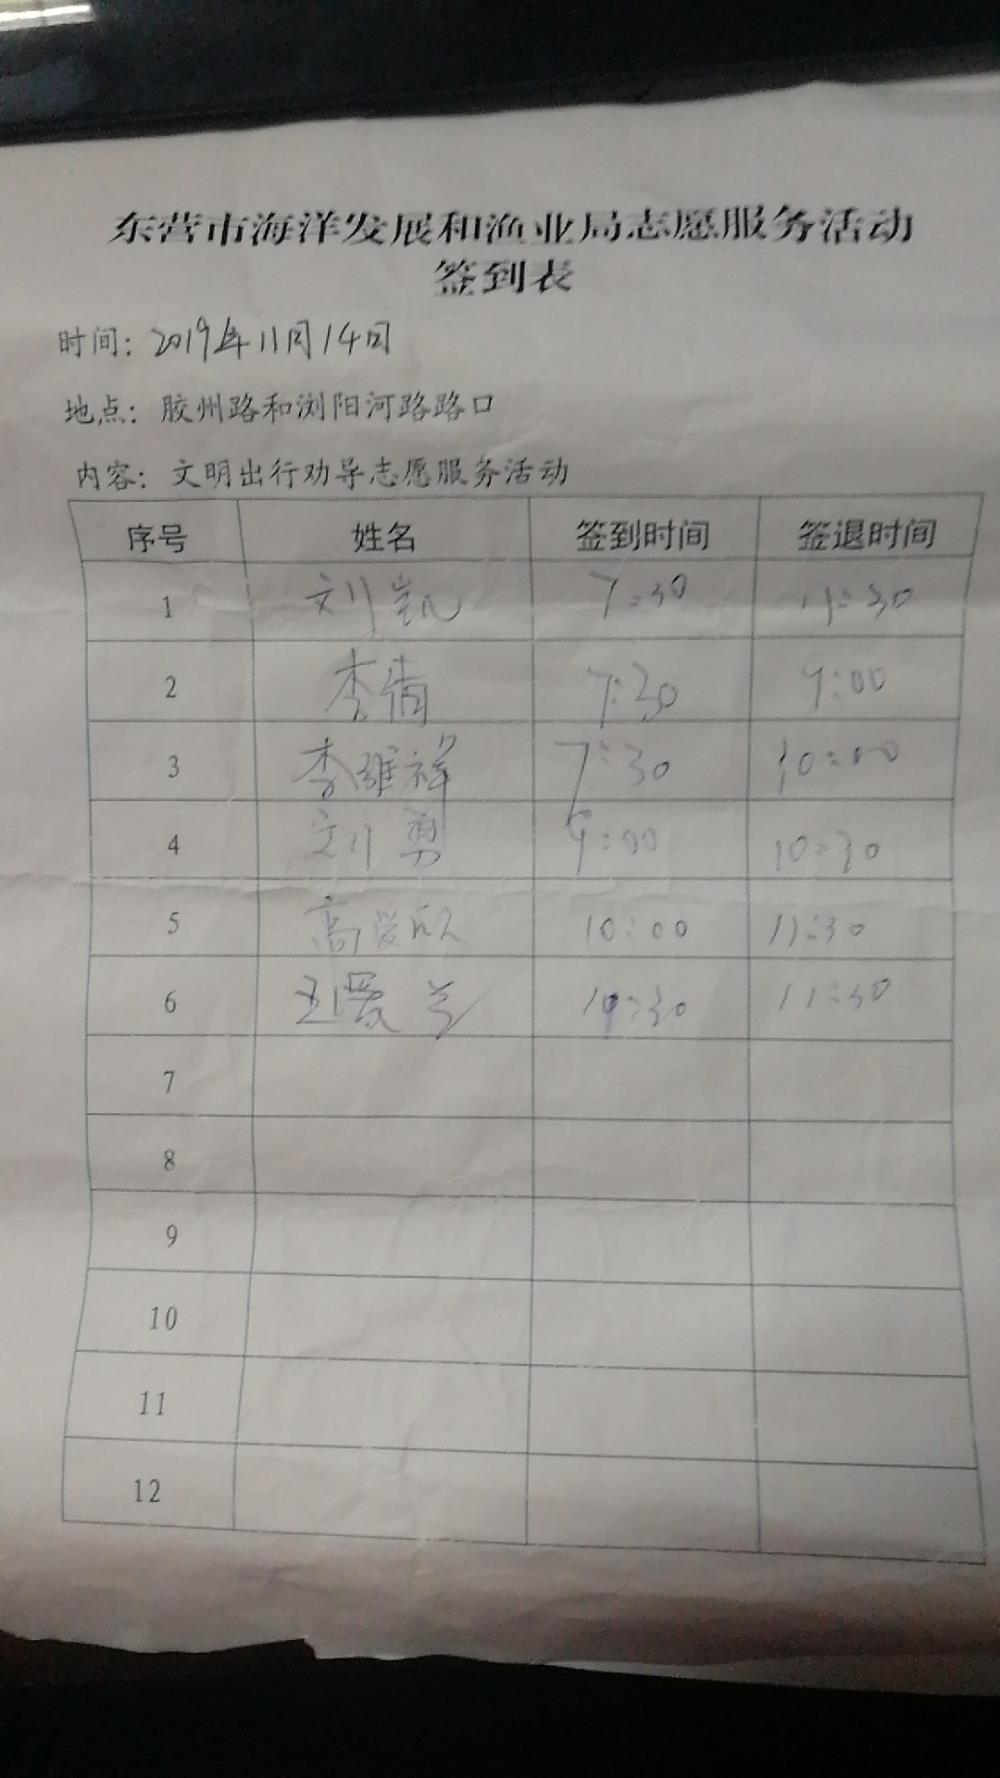 东营市海洋发展和渔业局志愿服务活动
签到表
时间：2019年11月14日
地点：胶州路和浏阳河路路口
内容：文明出行劝导志愿服务活动
序号 姓名 签到时间 签退时间
1 刘凯 7:30 11:30
2 李倩 7:30 9:00
3 李维祥 7:30 10:00
4 刘勇 9:00 10:30
5 高爱欣 10:00 11:30
6 王爱兰 10:30 11:30
7
8
9
10
11
12